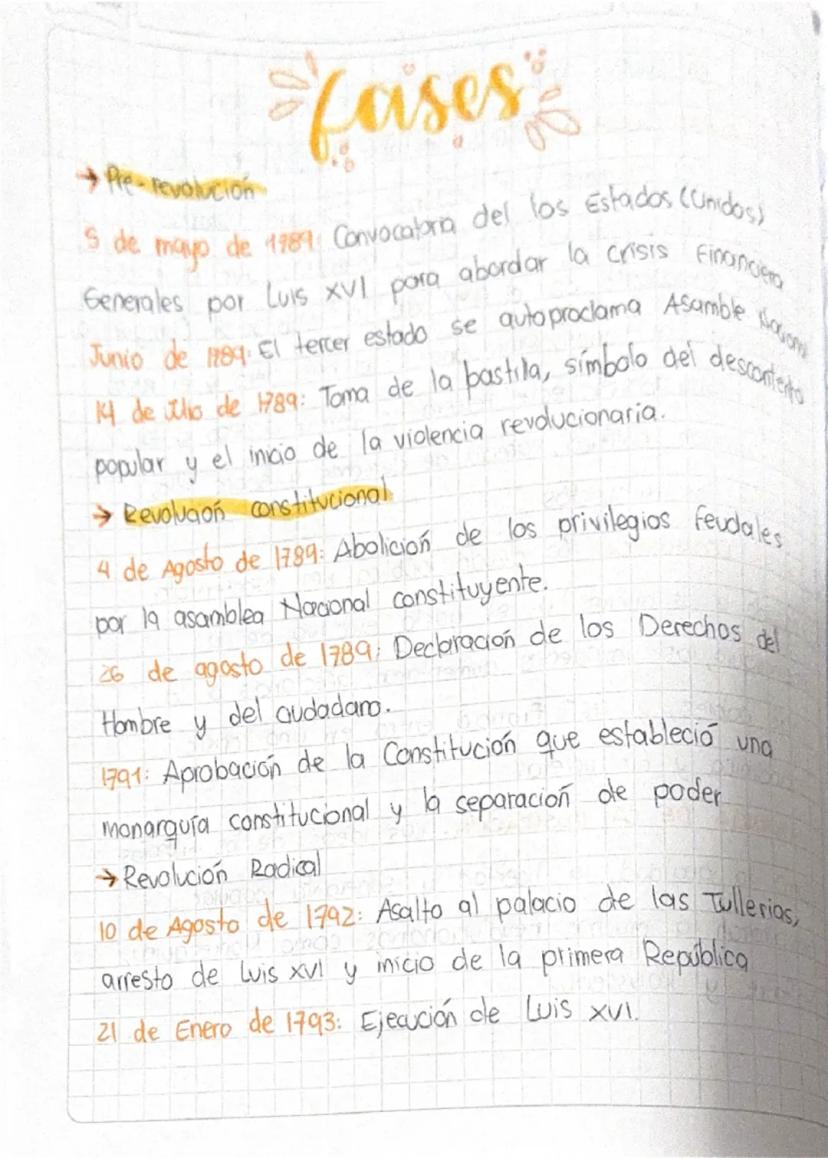 fases
→ Pre-revolución
5 de mayo de 1789: Convocatoria del los Estados (Unidos)
Generales por Luis XVI para abordar la crisis Financiera
Junio de 1789: El tercer estado se autoproclama Asamble Nacional
14 de Julio de 1789: Toma de la bastilla, símbolo del descontento
popular y el inicio de la violencia revolucionaria.
→ Revolución constitucional
4 de Agosto de 1789: Abolición de los privilegios feudales
por la asamblea Nacional constituyente.
26 de agosto de 1789: Declaración de los Derechos del
Hombre y del ciudadano.
1791: Aprobación de la Constitución que estableció una
monarquía constitucional y la separación de poder
→ Revolución Radical
10 de Agosto de 1792: Asalto al palacio de las Tullerias,
arresto de Luis XVI y inicio de la primera República
21 de Enero de 1793: Ejecución de Luis XVI.